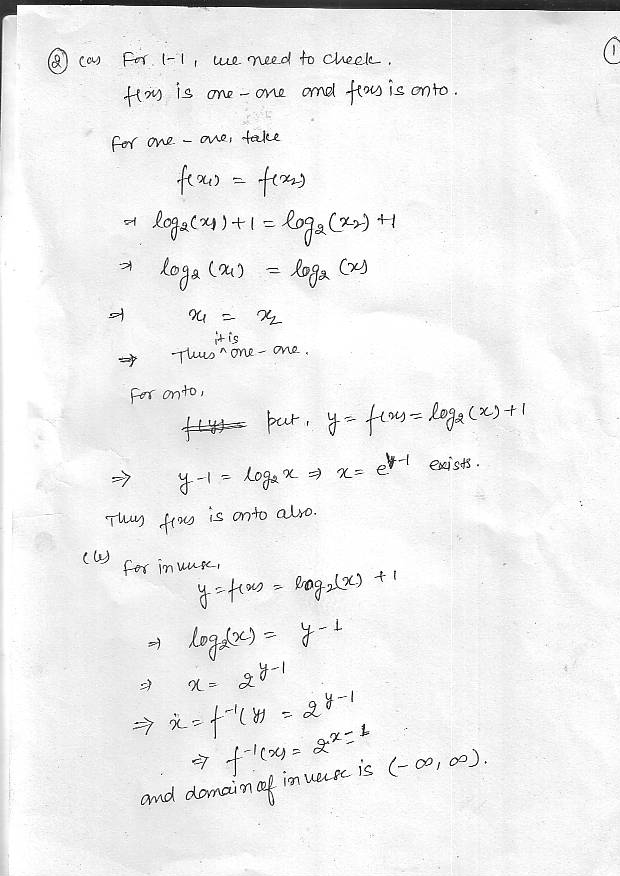 ② (a) For 1-1, we need to check.
f(x) is one-one and f(x) is onto.
For one-one, take
f(x₁) = f(x₂)
⇒ log₂(x₁)+1 = log₂(x₂)+1
⇒ log₂(x₁) = log₂(x)
⇒ x₁ = x₂
⇒ Thus ^it is one-one.
For onto,
put, y = f(x) = log₂(x)+1
⇒ y-1 = log₂x ⇒ x = e^(y-1) exists.
Thus f(x) is onto also.
(b) For inverse,
y = f(x) = log₂(x) + 1
⇒ log₂(x) = y-1
⇒ x = 2^(y-1)
⇒ x = f⁻¹(y) = 2^(y-1)
⇒ f⁻¹(x) = 2^(x-1)
and domain of inverse is (-∞, ∞).